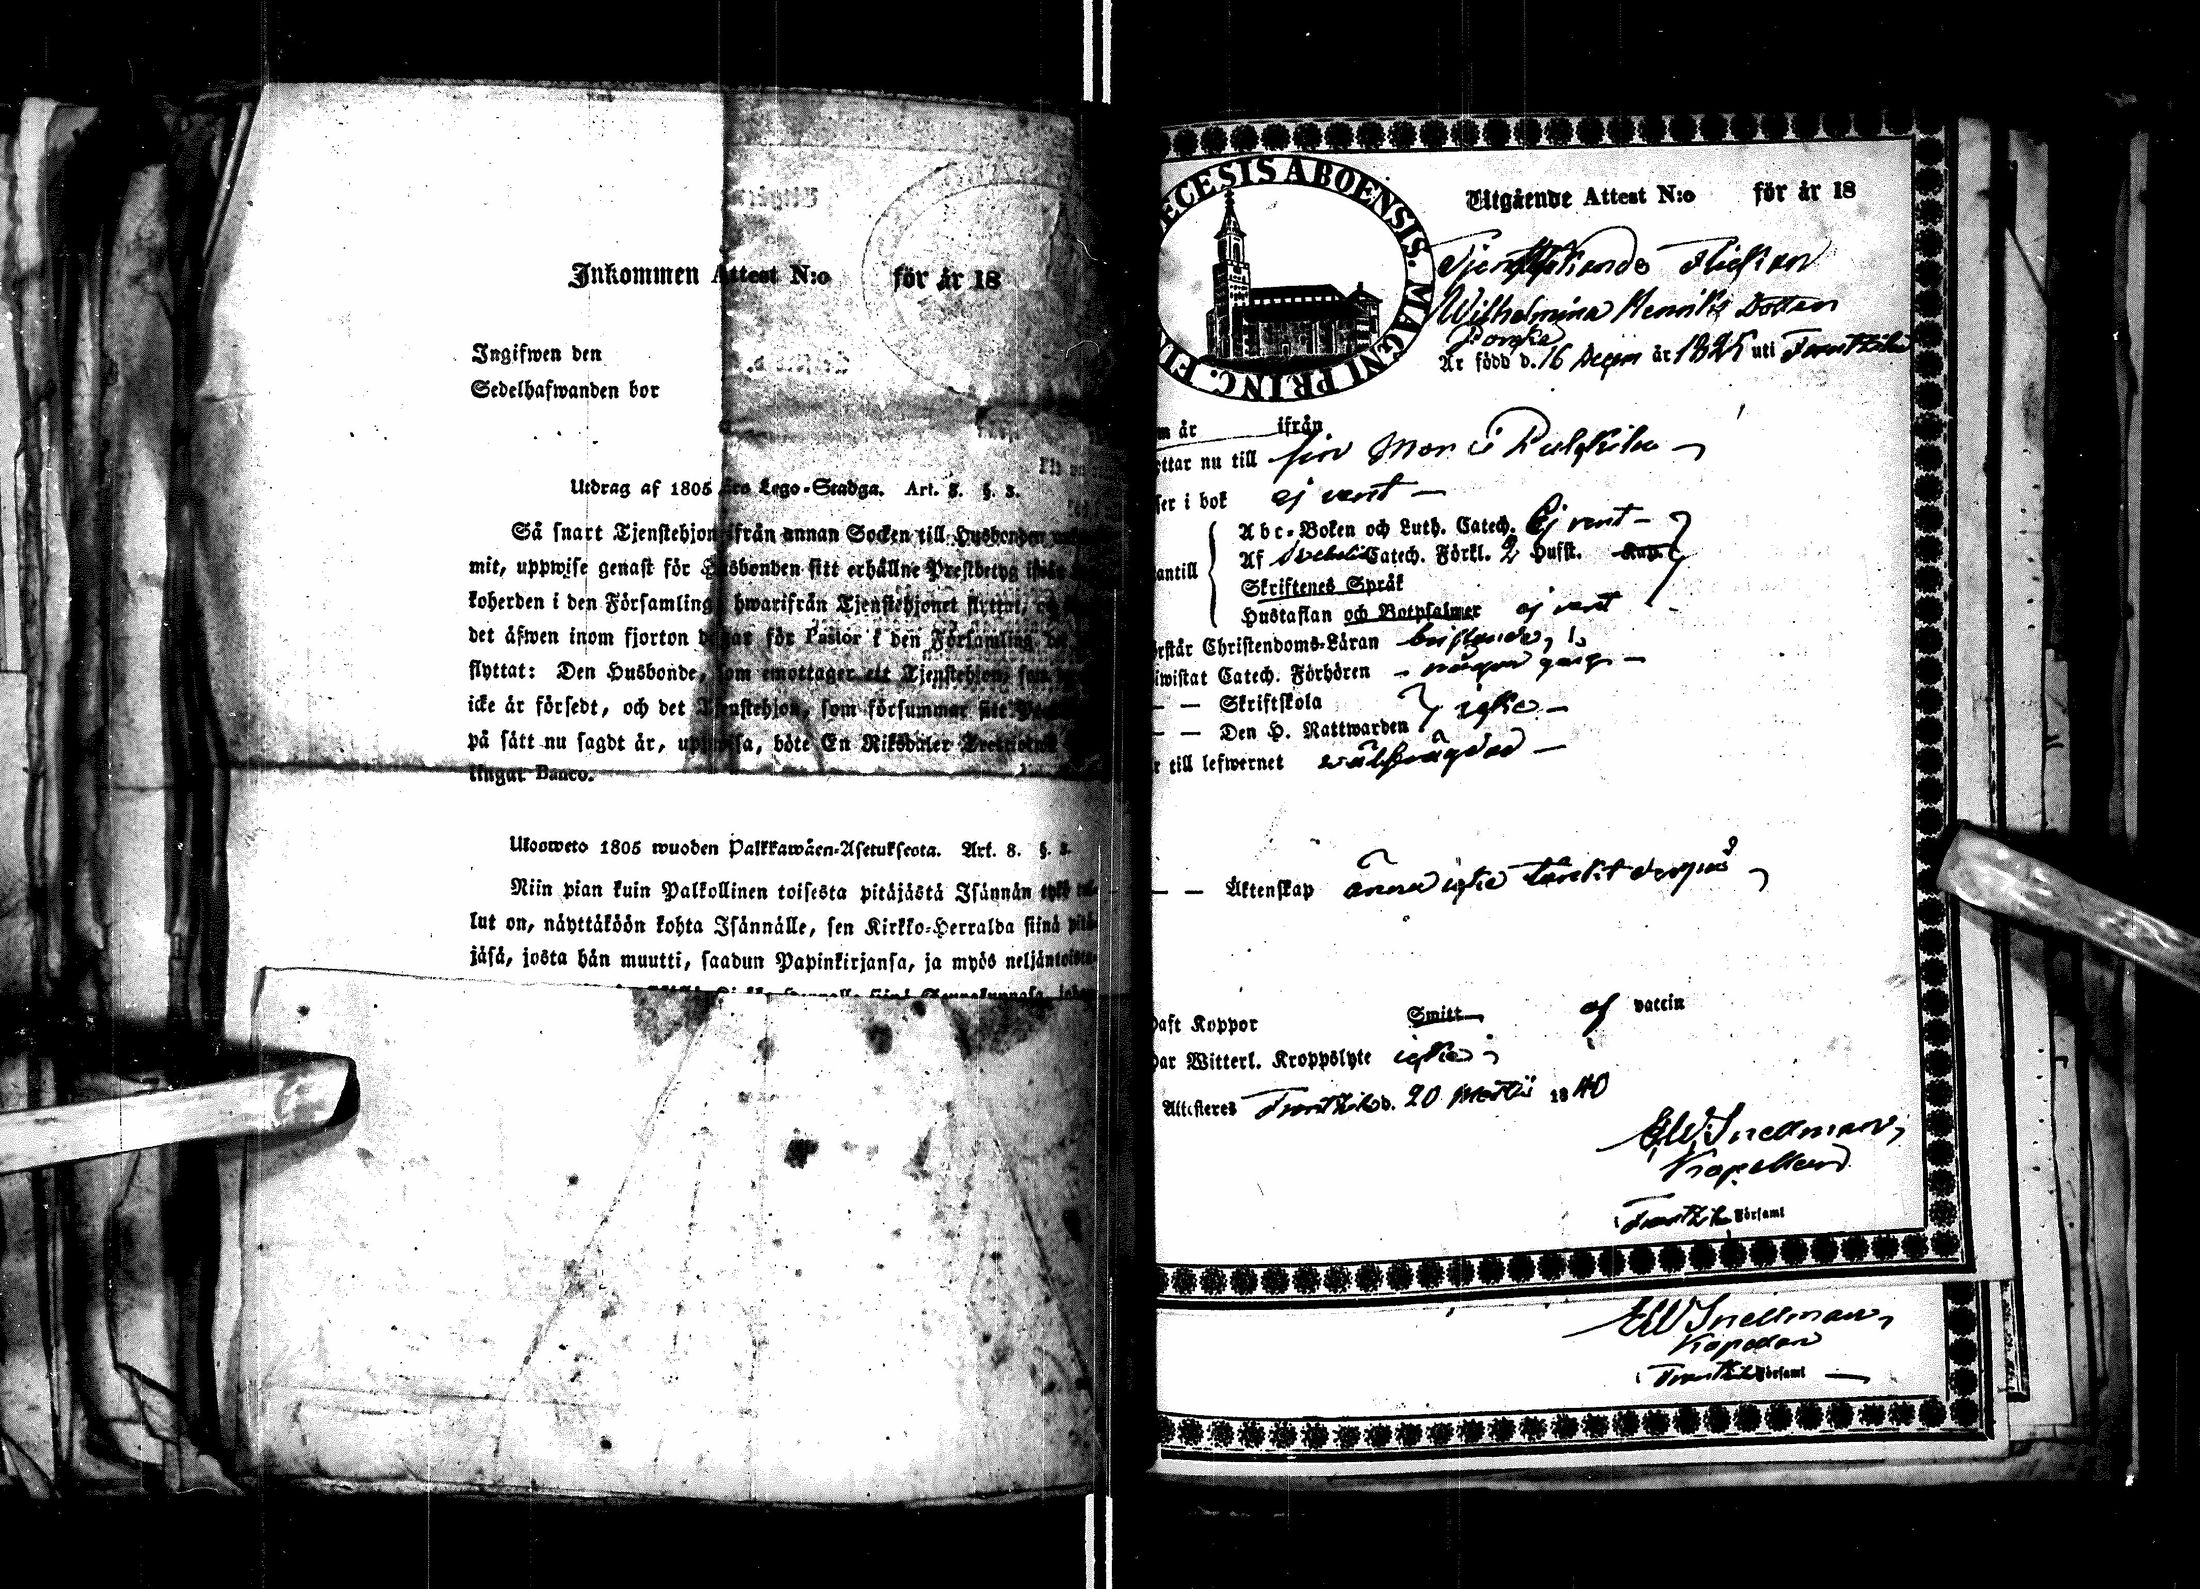 Inkommen Attest N:o för år 18
Ingifwen den
Sedelhafwanden bor
Utdrag af 1805 års Lego-Stadga. Art. 8. §. 3.
Så snart Tjenstehjon ifrån annan Socken till Husbonden
mit, uppwise genast för Husbonden sitt erhållne Prestbetyg ifrån
koherden i den Församling, hwarifrån Tjenstehjonet flyttat,
det äfwen inom fjorton dagar för Pastor i den Församling
flyttat: Den Husbonde, som emottager ett Tjenstehjon, som
icke är försedt, och det Tjenstehjon, som försummar sitt
på sätt nu sagdt är, uppwisa, böte En Riksdaler
lingar Banco.
Ulosweto 1805 wuoden Palkkawäen-Asetuksesta. Art. 8. §. 3.
Niin pian kuin Palkollinen toisesta pitäjästä Isännän tykö
lut on, näyttäköön kohta Isännälle, sen Kirkko-Herralda siinä
jäsä, josta hän muutti, saadun Papinkirjansa, ja myös neljäntoista
ECESIS ABOENSIS. MAGNI PRINC. FIN
Utgående Attest N:o för år 18
Tjenstsökande Flickan
Wilhelmina Henriks Dotter
Är född d. 16 Decem år 1825 uti Frantzila
m år ifrån
ttar nu till sin Mor i Pulkkila
ser i bok ej rent
A b c-Boken och Luth. Catech. Ej rent
Af Svebelii Catech. Förkl. 2 Hufst. Kap.
antill Skriftenes Språk
Hustaflan och Botpsalmer ej rent
rstår Christendoms-Läran bristande
iwistat Catech. Förhören någon gång
— — Skriftskola
— — Den H. Nattwarden icke
r till lefwernet wälfrägdad
— — Äktenskap ännu icke tänkt derpå
haft Koppor Smitt af vaccin
har Witterl. Kroppslyte icke
Attesteres Frantzila d. 20 Martii 1840
EW Snellman,
Kapellan
i Frantzila Församl
EW Snellman,
Kapellan
i Frantzila Församl